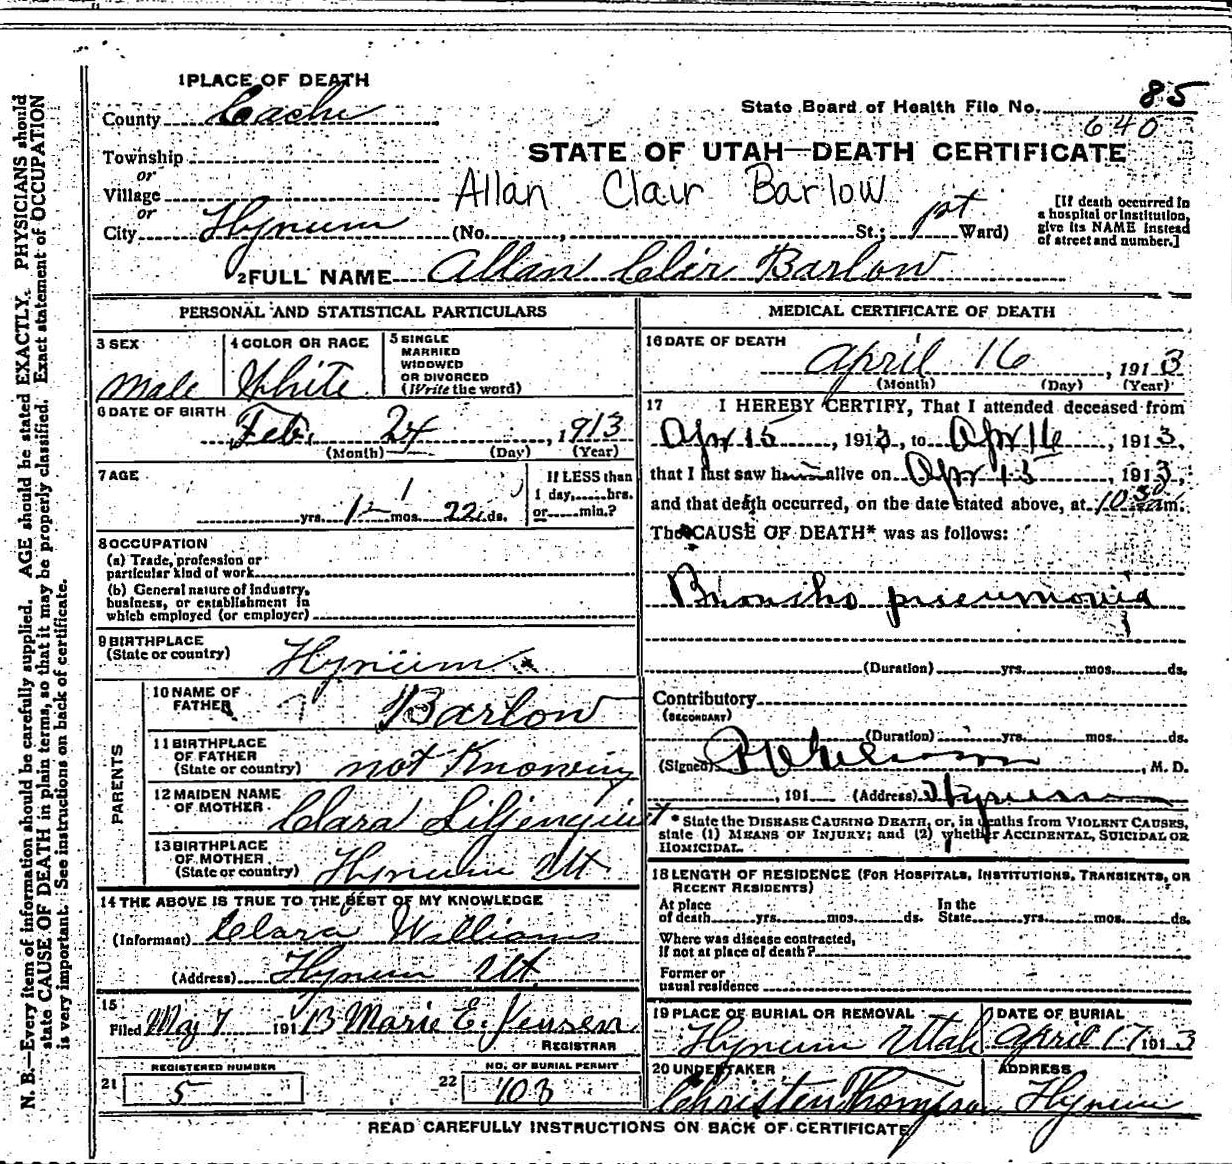 1 PLACE OF DEATH
County Cache
State Board of Health File No. 85
640
Township
or
Village
or
City Hyrum
STATE OF UTAH—DEATH CERTIFICATE
Allan Clair Barlow
(No. , St.; 1st Ward)
[If death occurred in a hospital or institution, give its NAME instead of street and number.]
2 FULL NAME Allan Clir Barlow
PERSONAL AND STATISTICAL PARTICULARS
3 SEX
Male
4 COLOR OR RACE
White
5 SINGLE
MARRIED
WIDOWED
OR DIVORCED
(Write the word)
6 DATE OF BIRTH
Feb. 24, 1913
(Month) (Day) (Year)
7 AGE
yrs. 1 mos. 22 ds.
If LESS than
1 day, hrs.
or min.?
8 OCCUPATION
(a) Trade, profession or
particular kind of work
(b) General nature of industry,
business, or establishment in
which employed (or employer)
9 BIRTHPLACE
(State or country) Hyrum
PARENTS
10 NAME OF
FATHER ? Barlow
11 BIRTHPLACE
OF FATHER
(State or country) not Knowing
12 MAIDEN NAME
OF MOTHER Clara Liljenquist
13 BIRTHPLACE
OF MOTHER
(State or country) Hyrum Ut
14 THE ABOVE IS TRUE TO THE BEST OF MY KNOWLEDGE
(Informant) Clara Williams
(Address) Hyrum Ut.
15
Filed May 7 1913 Marie E. Jensen
REGISTRAR
REGISTERED NUMBER
21 5
NO. OF BURIAL PERMIT
22 103
MEDICAL CERTIFICATE OF DEATH
16 DATE OF DEATH
April 16, 1913
(Month) (Day) (Year)
17 I HEREBY CERTIFY, That I attended deceased from
Apr 15, 1913, to Apr 16, 1913,
that I last saw him alive on Apr 15, 1913,
and that death occurred, on the date stated above, at 10 30 am.
The CAUSE OF DEATH* was as follows:
Broncho pneumonia
(Duration) yrs. mos. ds.
Contributory
(SECONDARY)
(Duration) yrs. mos. ds.
(Signed) , M. D.
, 191 (Address) Hyrum
* State the DISEASE CAUSING DEATH, or, in deaths from VIOLENT CAUSES,
state (1) MEANS OF INJURY; and (2) whether ACCIDENTAL, SUICIDAL OR
HOMICIDAL.
18 LENGTH OF RESIDENCE (FOR HOSPITALS, INSTITUTIONS, TRANSIENTS, OR
RECENT RESIDENTS)
At place
of death yrs. mos. ds.
In the
State yrs. mos. ds.
Where was disease contracted,
if not at place of death?
Former or
usual residence
19 PLACE OF BURIAL OR REMOVAL
Hyrum Utah
DATE OF BURIAL
April 17 1913
20 UNDERTAKER
Christen Thompson
ADDRESS
Hyrum
READ CAREFULLY INSTRUCTIONS ON BACK OF CERTIFICATE
N. B.—Every item of information should be carefully supplied. AGE should be stated EXACTLY. PHYSICIANS should
state CAUSE OF DEATH in plain terms, so that it may be properly classified. Exact statement of OCCUPATION
is very important. See instructions on back of certificate.